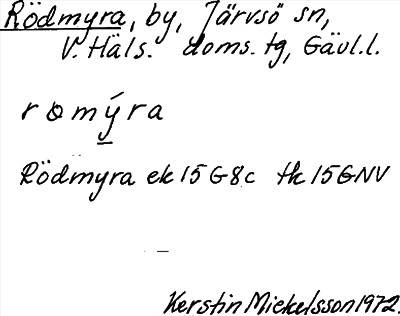 Rödmyra, by, Järvsö sn,
V. Häls. doms. tg, Gävl.l.
romýra
Rödmyra ek 15G8c tk 15GNV
Kerstin Mickelsson 1972.